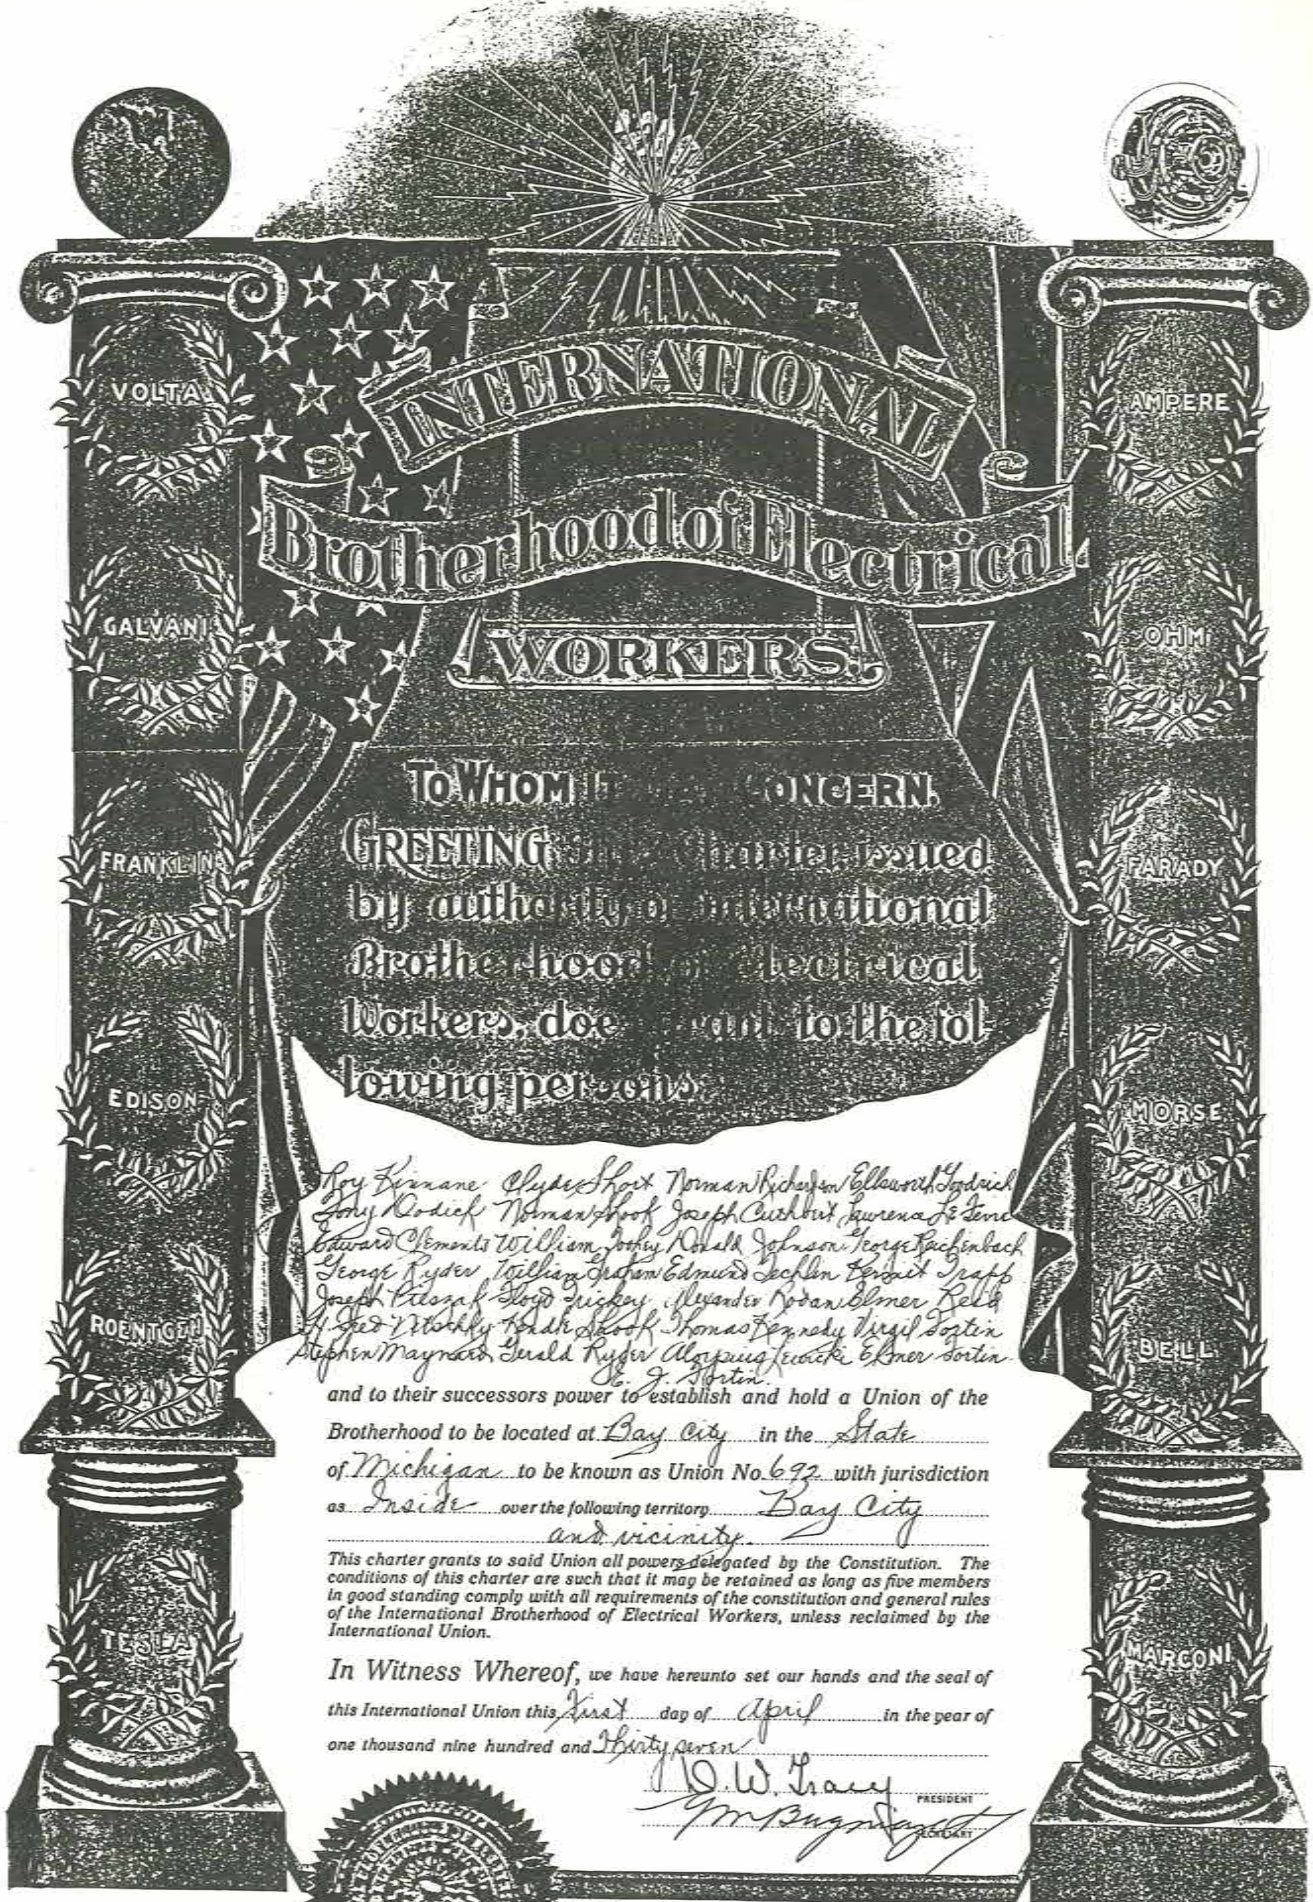 INTERNATIONAL
Brotherhood of Electrical
WORKERS.
VOLTA
GALVANI
FRANKLIN
EDISON
ROENTGEN
TESLA
AMPERE
OHM
FARADY
MORSE
BELL
MARCONI
TO WHOM IT CONCERN.
GREETING Charter issued
by authority of international
Brotherhood of Electrical
Workers, does grant to the fol
lowing persons.
Roy Kinnane Clyde Short Norman Richardson Ellsworth Goodrich
Tony Dodick Norman Shook Joseph Cuthbert Lawrence Le Fevre
Edward Clements William Donald Johnson George Reichenbach
George Ryder William Graham Edmund Techlin Kermit Trapp
Joseph Floyd Trickey Alexander Rodan Elmer Reid
Shook Thomas Kennedy Virgil Fortin
Stephen Maynard Gerald Ryder Aloysius Elmer Fortin
E. J. Fortin.
and to their successors power to establish and hold a Union of the
Brotherhood to be located at Bay City in the State
of Michigan to be known as Union No. 692 with jurisdiction
as Inside over the following territory Bay City
and vicinity.
This charter grants to said Union all powers delegated by the Constitution. The
conditions of this charter are such that it may be retained as long as five members
in good standing comply with all requirements of the constitution and general rules
of the International Brotherhood of Electrical Workers, unless reclaimed by the
International Union.
In Witness Whereof, we have hereunto set our hands and the seal of
this International Union this First day of April in the year of
one thousand nine hundred and Thirty seven
D. W. Tracy
PRESIDENT
G M Bugniazet
SECRETARY